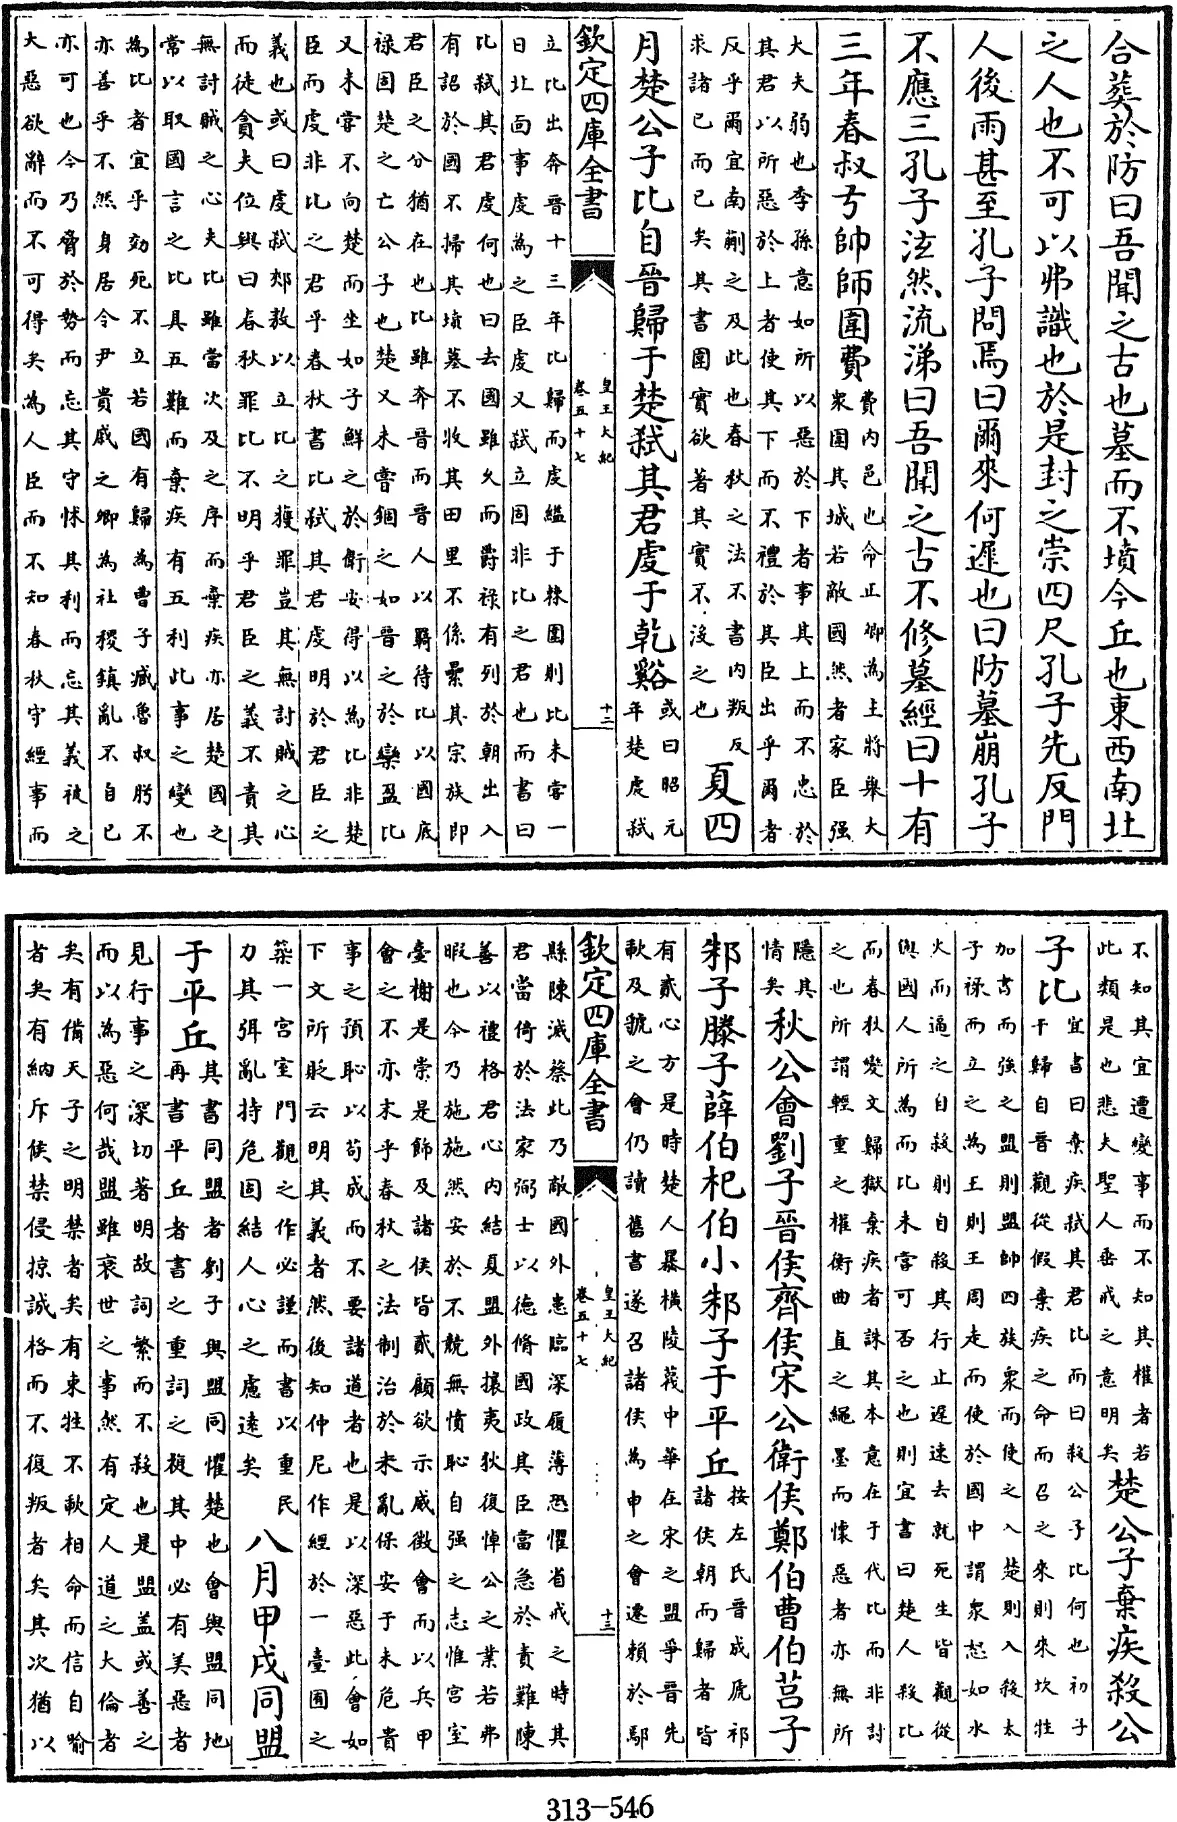 合葬於防曰吾聞之古也墓而不墳今丘也東西南北
之人也不可以弗識也於是封之崇四尺孔子先反門
人後雨甚至孔子問焉曰爾來何遲也曰防墓崩孔子
不應三孔子泫然流涕曰吾聞之古不修墓經曰十有
三年春叔弓帥師圍費
費內邑也命正卿為主將舉大
衆圍其城若敵國然者家臣强
大夫弱也季孫意如所以惡於下者事其上而不忠於
其君以所惡於上者使其下而不禮於其臣出乎爾者
反乎爾宜南蒯之及此也春秋之法不書內叛反
求諸己而已矣其書圍實欲著其實不沒之也
夏四
月楚公子比自晉歸于楚弑其君虔于乾谿
或曰昭元
年楚虔弑
欽定四庫全書
皇王大紀
卷五十七
十二
立比出奔晉十三年比歸而虔縊于棘圍則比未嘗一
日北面事虔為之臣虔又弑立固非比之君也而書曰
比弑其君虔何也曰去國雖久而爵祿有列於朝出入
有詔於國不掃其墳墓不收其田里不係纍其宗族即
君臣之分猶在也比雖奔晉而晉人以羇待比以國底
祿固楚之亡公子也楚又未嘗錮之如晉之於欒盈比
又未嘗不向楚而坐如子鮮之於衛安得以為比非楚
臣而虔非比之君乎春秋書比弑其君虔明於君臣之
義也或曰虔弑郟敖以立比之獲罪豈其無討賊之心
而徒貪夫位與曰春秋罪比不明乎君臣之義不責其
無討賊之心夫比雖當次及之序而棄疾亦居楚國之
常以取國言之比具五難而棄疾有五利此事之變也
為比者宜乎効死不立若國有歸為曹子臧魯叔肹不
亦善乎不然身居令尹貴戚之卿為社稷鎮亂不自已
亦可也今乃脅於勢而忘其守怵其利而忘其義被之
大惡欲辭而不可得矣為人臣而不知春秋守經事而
不知其宜遭變事而不知其權者若
此類是也悲夫聖人垂戒之意明矣
楚公子棄疾殺公
子比
宜書曰棄疾弑其君比而曰殺公子比何也初子
干歸自晉觀從假棄疾之命而召之來則來坎牲
加書而強之盟則盟帥四族衆而使之入楚則入殺太
子祿而立之為王則王周走而使於國中謂衆怒如水
火而逼之自殺則自殺其行止遲速去就死生皆觀從
與國人所為而比未嘗可否之也則宜書曰楚人殺比
而春秋變文歸獄棄疾者誅其本意在于代比而非討
之也所謂輕重之權衡曲直之繩墨而懷惡者亦無所
隱其
情矣
秋公會劉子晉侯齊侯宋公衛侯鄭伯曹伯莒子
邾子滕子薛伯杞伯小邾子于平丘
按左氏晉成虒祁
諸侯朝而歸者皆
有貳心方是時楚人暴橫陵蔑中華在宋之盟爭晉先
歃及虢之會仍讀舊書遂召諸侯為申之會遷賴於鄢
欽定四庫全書
皇王大紀
卷五十七
十三
縣陳滅蔡此乃敵國外患臨深履薄恐懼省戒之時其
君當倚於法家弼士以德脩國政其臣當急於責難陳
善以禮格君心內結夏盟外攘夷狄復悼公之業若弗
暇也今乃施施然安於不競無憤恥自强之志惟宮室
臺榭是崇是飾及諸侯皆貳顧欲示威徴會而以兵甲
會之不亦末乎春秋之法制治於未亂保安于未危貴
事之預恥以苟成而不要諸道者也是以深惡此會如
下文所貶云明其義者然後知仲尼作經於一臺囿之
築一宮室門觀之作必謹而書以重民
力其弭亂持危固結人心之慮遠矣
八月甲戌同盟
于平丘
其書同盟者劉子與盟同懼楚也會與盟同地
再書平丘者書之重詞之複其中必有美惡者
見行事之深切著明故詞繁而不殺也是盟盖或善之
而以為惡何哉盟雖衰世之事然有定人道之大倫者
矣有備天子之明禁者矣有束牲不歃相命而信自喻
者矣有納斥侯禁侵掠誠格而不復叛者矣其次猶以
313-546